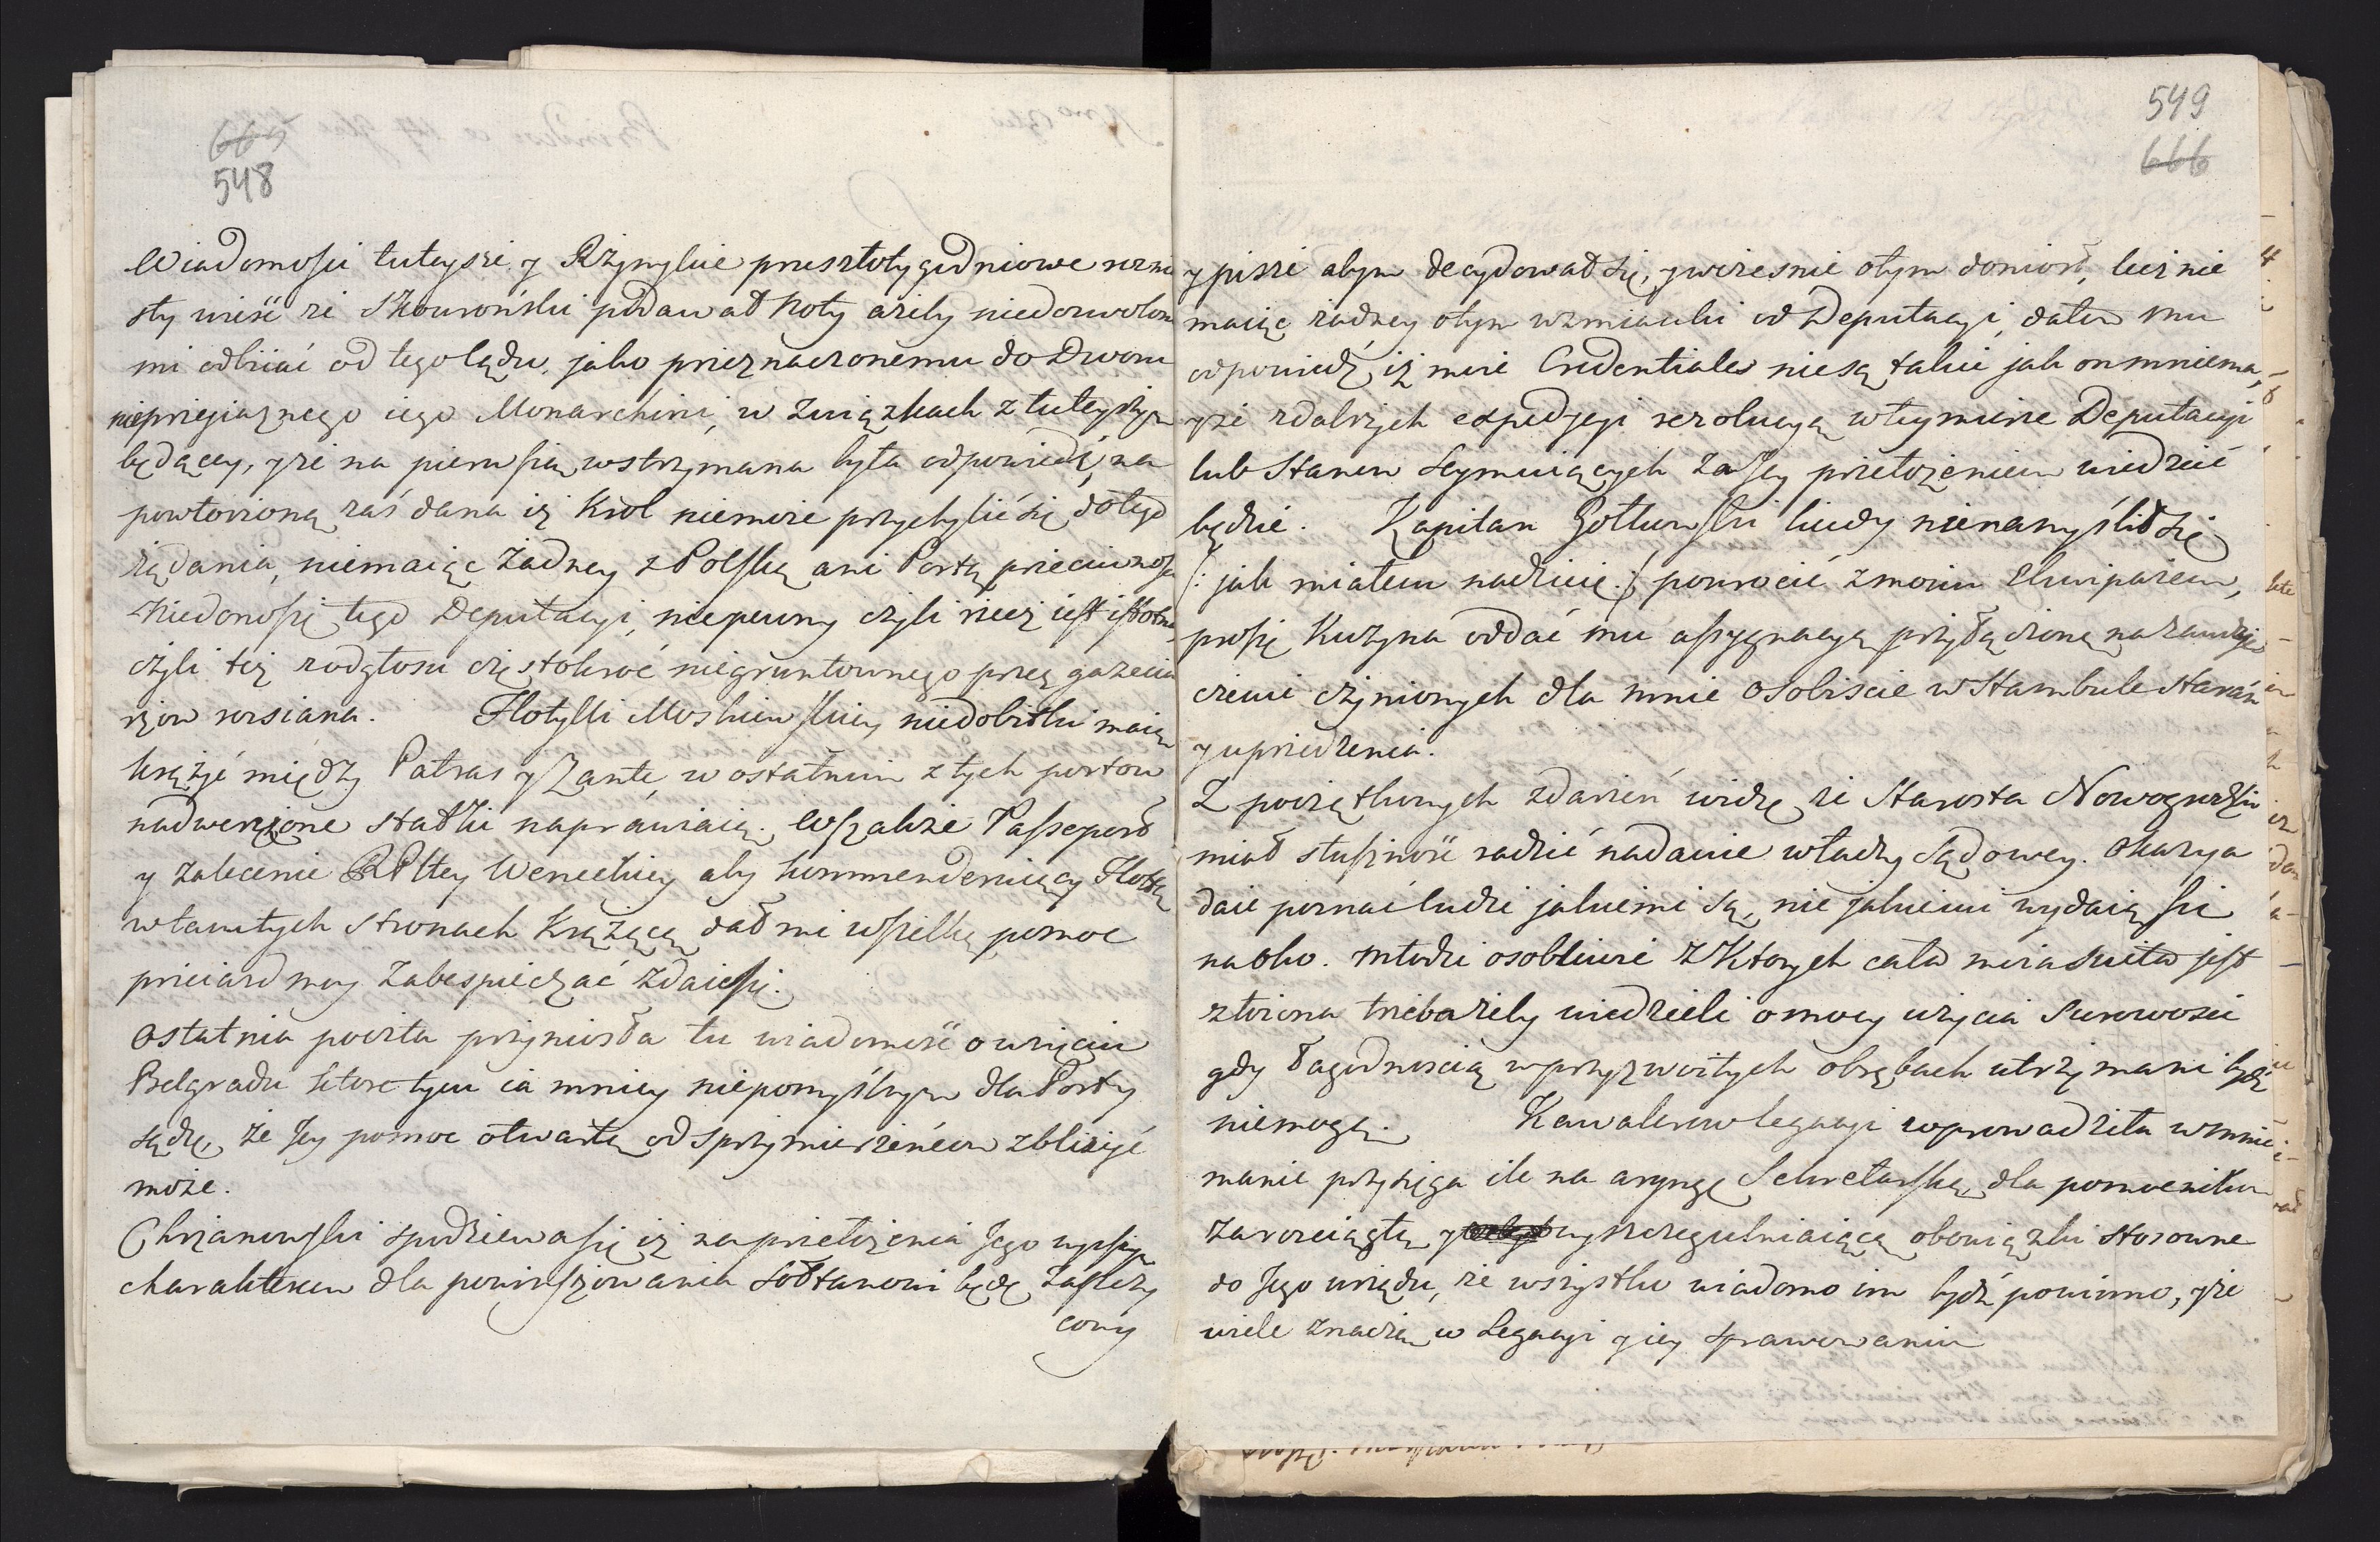 665
548
Wiadomości tuteysze y Rzymskie przeszłotygodniowe rozno
sły wieść że Skowroński podawał Noty ażeby niedozwolono
mi odbiiać od tego lądu, jako przeznaczonemu do Dworu
nieprzyiaznego iego Monarchini, w związkach z tuteyszym
będącey, y że na pierwszą wstrzymana była odpowiedź, na
powtorzoną zaś dana iż Krol niemoże przychylić się do tego
żądania, niemaiąc żadney z Polską ani Portą przeciwnosci
Niedonoszę tego Deputacyi, niepewny czyli rzecz iest istotna,
czyli też rozgłosu częstokroć niegruntownego przez gazecia
rzow rosiana. Flotylli Moskiewskiey niedobitki maią
krążyć między Patras y Zante, w ostatnim z tych portow
nadwerężone statki naprawiaią. Wszakże Passeport
y zalecenie RPltey Weneckiey aby kommenderuiący Flottą
w tamtych stronach krążącą dał mi wszelką pomoc
przeiazd moy zabespieczać zdaie się.
Ostatnia poczta przyniosła tu wiadomość o wzięciu
Belgradu ktore tym ia mniey niepomyślnym dla Porty
sądzę, że Jey pomoc otwartą od sprzymierzeńcow zbliżyć
może.
Chrzanowski spodziewa się iż na przełożenia Jego wyższym
charakterem dla powinszowania Sołtanowi będę zaszczy
cony
549
666
y pisze abym decydował się, y wcześnie o tym doniosł, lecz nie
maiąc żadney o tym wzmianki od Deputacyi, dałem mu
odpowiedź, iż moie Credentiales nie są takie jak on mniema,
y że z dalszych expedycyi rezolucyą w tey mierze Deputacyi
lub Stanow Seymuiących za Jey przełożeniem wiedzieć
będzie. Kapitan Gotkowski kiedy nienamyślił się
/: jak miałem nadzieię :/ powrocić z moim Ekwipażem,
proszę Kuzyna oddać mu assygnacyą przyłączoną na zawdzię
czenie czynionych dla mnie osobiscie w Stambule starań
y uprzedzenia.
Z początkowych zdarzeń widzę że Starosta Nowogrodzki
miał słuszność radzić nadanie władzy Sądowey. Okazya
daie poznać ludzi jakiemi są, nie jakiemi wydaią się
na oko. Młodzi osobliwie z ktorych cała moia suita jest
złożona trzeba żeby wiedzieli o mocy użycia surowości
gdy łagodnością w przyzwoitych obrębach utrzymani bydź
niemogą. Kawalerow legacyi wprowadziła w mnie
manie przysięga ile na arynge Sekretarską, dla pomocnikow
zarozciągłą y wyszczegulniaiącą obowiązki stosowne
do Jego urzędu, że wszystko wiadomo im bydź powinno, y że
wiele znaczą w Legacyi y iey sprawowaniu